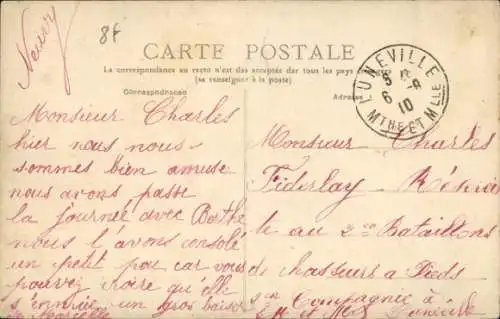 Neuvy
8f
CARTE POSTALE
La correspondance au recto n'est pas acceptée par tous les pays
(se renseigner à la poste)
Correspondance
Adresse
LUNEVILLE
6
10
MTHE ET MLLE
Monsieur Charles
hier nous nous
sommes bien amuse
nous avons passe
la journée avec Berthe
nous l'avons consolé
un petit peu car vous
pouvez croire qu'elle
s'ennuie un gros baiser
Monsieur Charles
au 2ᵉ Bataillons
de chasseurs a Pieds
Compagnie a
Lunéville